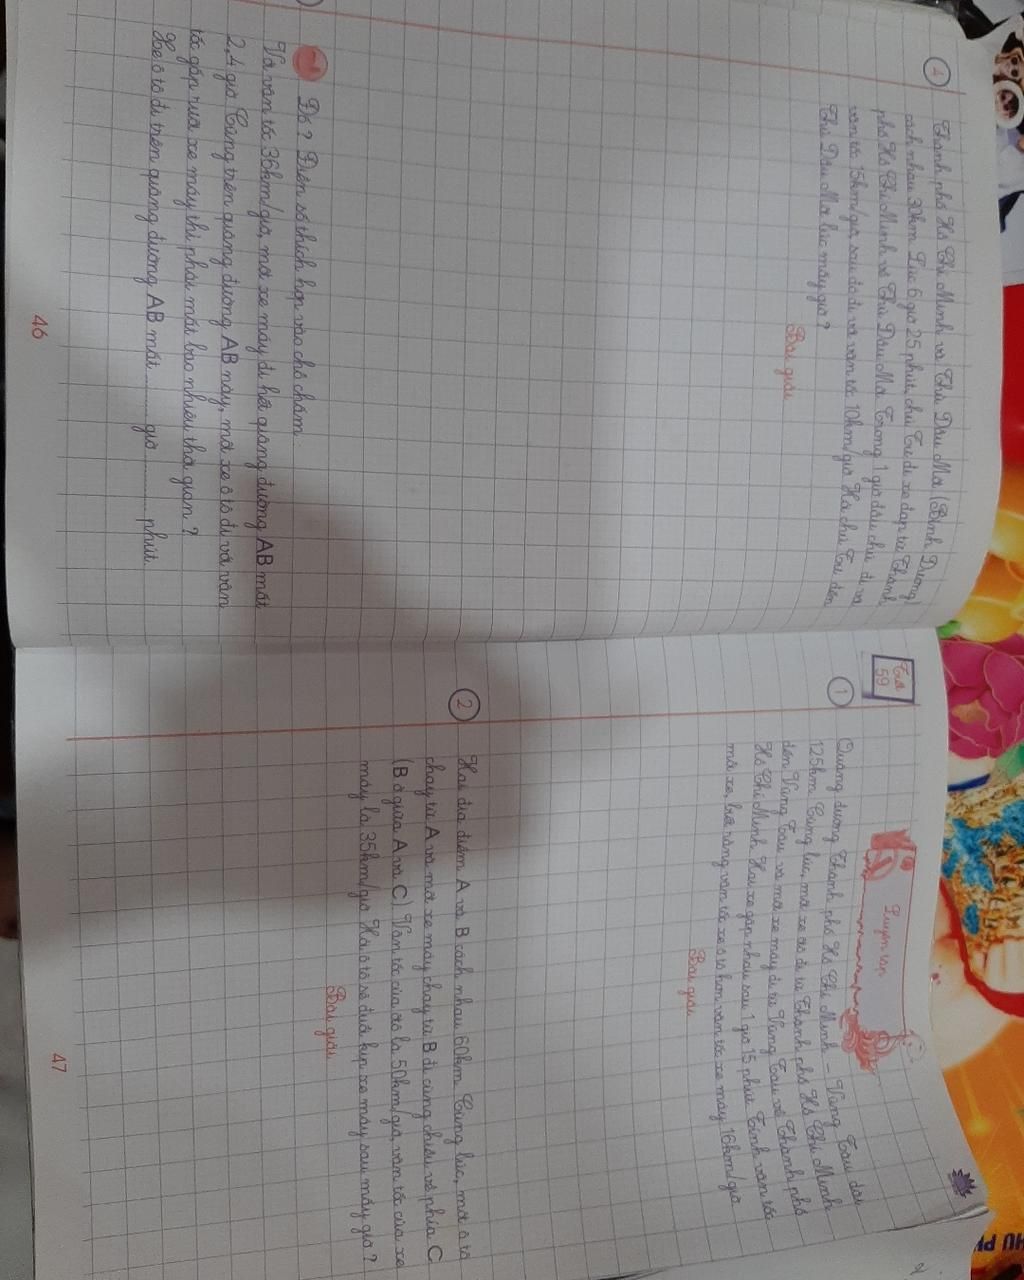 4
Thành phố Hồ Chí Minh và Thủ Dầu Một (Bình Dương)
cách nhau 30km. Lúc 6 giờ 25 phút, chú Tư đi xe đạp từ Thành
phố Hồ Chí Minh về Thủ Dầu Một. Trong 1 giờ đầu chú đi với
vận tốc 15km/giờ sau đó đi với vận tốc 10km/giờ. Hỏi chú Tư đến
Thủ Dầu Một lúc mấy giờ?
Bài giải
Đố? Điền số thích hợp vào chỗ chấm.
Với vận tốc 36km/giờ, một xe máy đi hết quãng đường AB mất
2,4 giờ. Cùng trên quãng đường AB này, một xe ô tô đi với vận
tốc gấp rưỡi xe máy thì phải mất bao nhiêu thời gian?
Xe ô tô đi trên quãng đường AB mất ........ giờ ........ phút.
46
Tiết
59
Luyện tập
1
Quãng đường Thành phố Hồ Chí Minh – Vũng Tàu dài
125km. Cùng lúc, một xe ô tô đi từ Thành phố Hồ Chí Minh
đến Vũng Tàu và một xe máy đi từ Vũng Tàu về Thành phố
Hồ Chí Minh. Hai xe gặp nhau sau 1 giờ 15 phút. Tính vận tốc
mỗi xe, biết rằng vận tốc xe ô tô hơn vận tốc xe máy 16km/giờ.
Bài giải
2
Hai địa điểm A và B cách nhau 60km. Cùng lúc, một ô tô
chạy từ A và một xe máy chạy từ B đi cùng chiều về phía C
(B ở giữa A và C). Vận tốc của ô tô là 50km/giờ, vận tốc của xe
máy là 35km/giờ. Hỏi ô tô sẽ đuổi kịp xe máy sau mấy giờ?
Bài giải
47